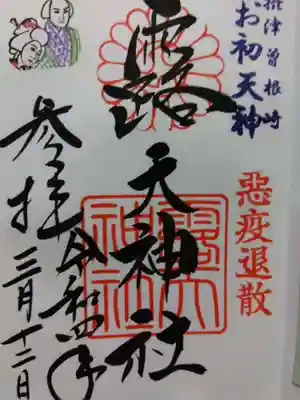 摂津曽根崎
お初天神
惡疫退散
露天神社
露天
神社
参拝
令和四年
三月十二日